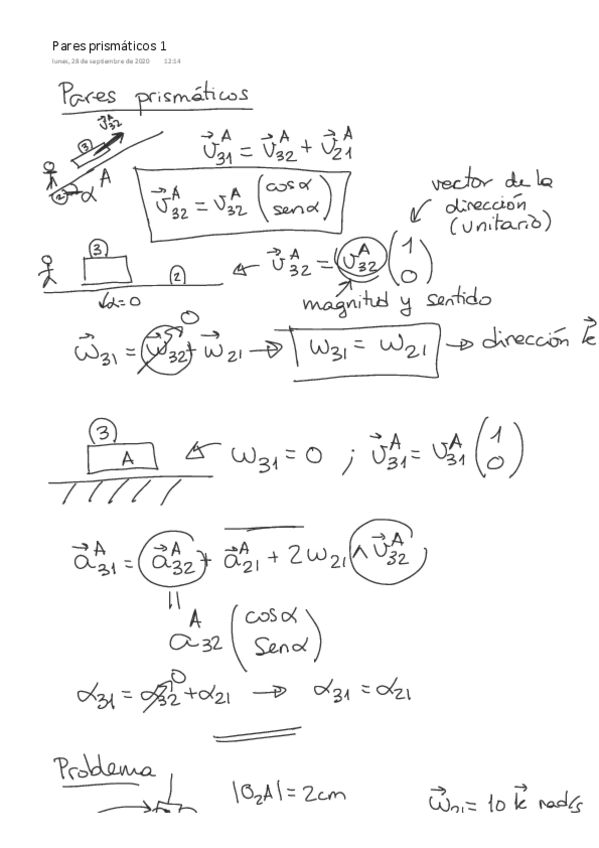 Pares prismáticos 1
lunes, 28 de septiembre de 2020 12:14
Pares prismáticos
③ v⃗₃₂ᴬ
② α A
v⃗₃₁ᴬ = v⃗₃₂ᴬ + v⃗₂₁ᴬ
v⃗₃₂ᴬ = v₃₂ᴬ (cosα senα)
vector de la
dirección
(unitario)
③ ② v⃗₃₂ᴬ = v₃₂ᴬ (1 0)
α=0
magnitud y sentido
ω⃗₃₁ = ω⃗₃₂ + ω⃗₂₁ → ω₃₁ = ω₂₁ → dirección k⃗
0
③
A ω₃₁ = 0 ; v⃗₃₁ᴬ = v₃₁ᴬ (1 0)
a⃗₃₁ᴬ = a⃗₃₂ᴬ + a⃗₂₁ᴬ + 2ω₂₁ ∧ v⃗₃₂ᴬ
||
a₃₂ᴬ (cosα senα)
0
α₃₁ = α₃₂ + α₂₁ → α₃₁ = α₂₁
Problema
|O₂A| = 2cm ω⃗₂₁ = 10 k⃗ rad/s